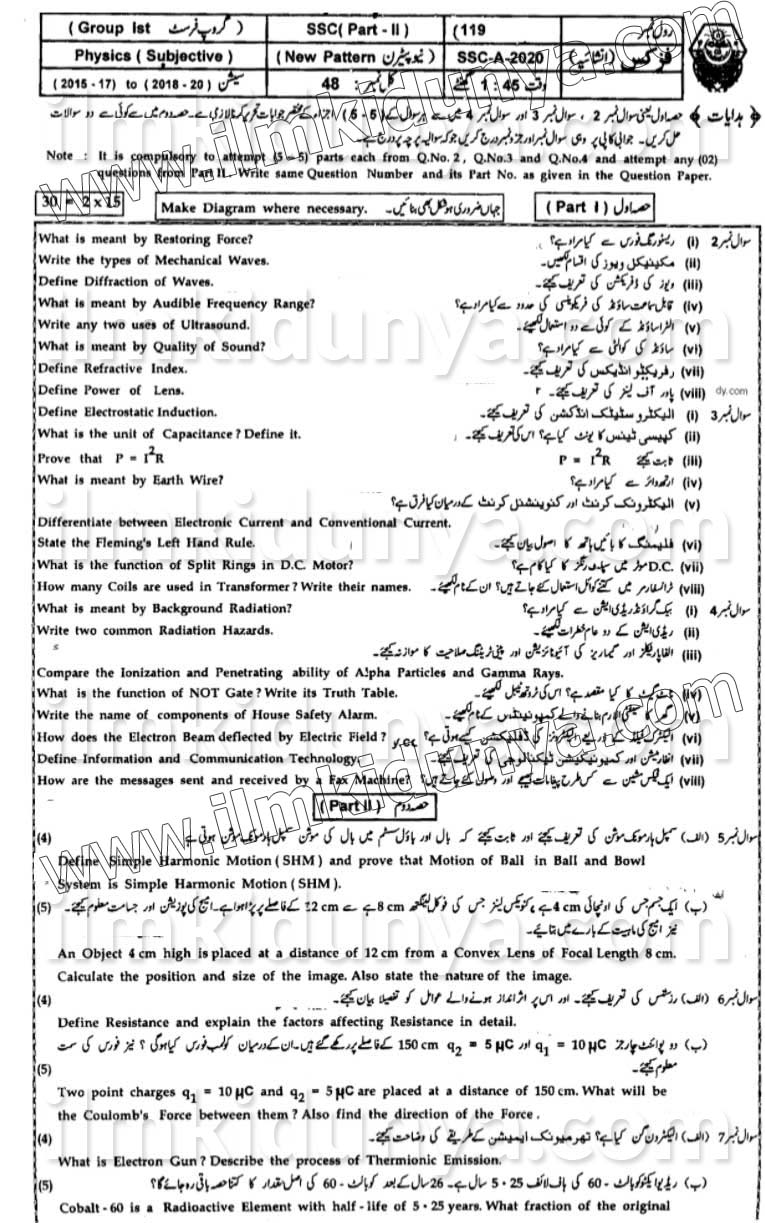 ( Group Ist گروپ فرسٹ ) SSC( Part - II ) (119 رول نمبر
Physics ( Subjective ) ( New Pattern نیو پیٹرن ) SSC-A-2020 فزکس (انشائیہ)
( 2015 - 17) to ( 2018 - 20 ) سیشن کل نمبر: 48 وقت 1 : 45 گھنٹے
﴿ ہدایات ﴾ حصہ اول یعنی سوال نمبر 2 ، سوال نمبر 3 اور سوال نمبر 4 میں سے ہر سوال کے ( 5 - 5 ) اجزاء کے مختصر جوابات تحریر کرنا لازمی ہے۔ حصہ دوم میں سے کوئی سے دو سوالات
حل کریں۔ جوابی کاپی پر وہی سوال نمبر اور جزو نمبر درج کریں جو کہ سوالیہ پرچہ پر درج ہے۔
Note : It is compulsory to attempt (5 – 5) parts each from Q.No. 2 , Q.No.3 and Q.No.4 and attempt any (02)
questions from Part II. Write same Question Number and its Part No. as given in the Question Paper.
30 = 2 x 15 Make Diagram where necessary. جہاں ضروری ہو شکل بھی بنائیں۔ ( Part I ) حصہ اول
What is meant by Restoring Force? سوال نمبر 2 (i) ریسٹورنگ فورس سے کیا مراد ہے؟
Write the types of Mechanical Waves. (ii) مکینیکل ویوز کی اقسام لکھیں۔
Define Diffraction of Waves. (iii) ویوز کی ڈفریکشن کی تعریف کیجئے۔
What is meant by Audible Frequency Range? (iv) قابل سماعت ساؤنڈ کی فریکوئنسی کی حدود سے کیا مراد ہے؟
Write any two uses of Ultrasound. (v) الٹراساؤنڈ کے کوئی سے دو استعمال لکھیئے۔
What is meant by Quality of Sound? (vi) ساؤنڈ کی کوالٹی سے کیا مراد ہے؟
Define Refractive Index. (vii) رفریکٹو انڈیکس کی تعریف کیجئے۔
Define Power of Lens. (viii) پاور آف لینز کی تعریف کیجئے۔ dy.com
Define Electrostatic Induction. سوال نمبر 3 (i) الیکٹروسٹیٹک انڈکشن کی تعریف کیجئے۔
What is the unit of Capacitance ? Define it. (ii) کپیسی ٹینس کا یونٹ کیا ہے؟ اس کی تعریف کیجئے۔
Prove that P = I²R (iii) ثابت کیجئے P = I²R
What is meant by Earth Wire? (iv) ارتھ وائر سے کیا مراد ہے؟
(v) الیکٹرونک کرنٹ اور کنوینشنل کرنٹ کے درمیان کیا فرق ہے؟
Differentiate between Electronic Current and Conventional Current.
State the Fleming's Left Hand Rule. (vi) فلیمنگ کا بائیں ہاتھ کا اصول بیان کیجئے۔
What is the function of Split Rings in D.C. Motor? (vii) D.C. موٹر میں سپلٹ رنگز کا کیا کام ہے؟
How many Coils are used in Transformer ? Write their names. (viii) ٹرانسفارمر میں کتنے کوائل استعمال کئے جاتے ہیں؟ ان کے نام لکھیئے۔
What is meant by Background Radiation? سوال نمبر 4 (i) بیک گراؤنڈ ریڈی ایشن سے کیا مراد ہے؟
Write two common Radiation Hazards. (ii) ریڈی ایشن کے دو عام خطرات لکھیئے۔
(iii) الفا پارٹیکلز اور گیما ریز کی آئیونائزیشن اور پینی ٹریٹنگ صلاحیت کا موازنہ کیجئے۔
Compare the Ionization and Penetrating ability of Alpha Particles and Gamma Rays.
What is the function of NOT Gate ? Write its Truth Table. (iv) ناٹ گیٹ کا کیا مقصد ہے؟ اس کی ٹروتھ ٹیبل لکھیئے۔
Write the name of components of House Safety Alarm. (v) گھر کا سیفٹی الارم بنانے والے کمپوننٹس کے نام لکھیئے۔
How does the Electron Beam deflected by Electric Field ? (vi) الیکٹرک فیلڈ کے ذریعے الیکٹرونز کی ڈفلیکشن کیسے ہوتی ہے؟
Define Information and Communication Technology. (vii) انفارمیشن اور کمیونیکیشن ٹیکنالوجی کی تعریف کیجئے۔
How are the messages sent and received by a Fax Machine? (viii) ایک فیکس مشین سے کس طرح پیغامات بھیجے اور وصول کئے جاتے ہیں؟
( Part II ) حصہ دوم
(4) سوال نمبر 5 (الف) سمپل ہارمونک موشن کی تعریف کیجئے اور ثابت کیجئے کہ بال اور باؤل سسٹم میں بال کی موشن سمپل ہارمونک موشن ہوتی ہے
Define Simple Harmonic Motion ( SHM ) and prove that Motion of Ball in Ball and Bowl
System is Simple Harmonic Motion ( SHM ).
(5) (ب) ایک جسم جس کی اونچائی 4 cm ہے ، کنویکس لینز جس کی فوکل لینگتھ 8 cm ہے سے 12 cm کے فاصلے پر پڑا ہوا ہے۔ امیج کی پوزیشن اور جسامت معلوم کیجئے۔
نیز امیج کی ماہیت کے بارے میں بتائیے۔
An Object 4 cm high is placed at a distance of 12 cm from a Convex Lens of Focal Length 8 cm.
Calculate the position and size of the image. Also state the nature of the image.
(4) سوال نمبر 6 (الف) رزسٹنس کی تعریف کیجئے۔ اور اس پر اثر انداز ہونے والے عوامل کو تفصیلا بیان کیجئے۔
Define Resistance and explain the factors affecting Resistance in detail.
(ب) دو پوائنٹ چارجز q₁ = 10 μC اور q₂ = 5 μC 150 cm کے فاصلے پر رکھے گئے ہیں۔ ان کے درمیان کولمب فورس کیا ہوگی ؟ نیز فورس کی سمت
(5) معلوم کیجئے۔
Two point charges q₁ = 10 μC and q₂ = 5 μC are placed at a distance of 150 cm. What will be
the Coulomb's Force between them ? Also find the direction of the Force .
(4) سوال نمبر 7 (الف) الیکٹرون گن کیا ہے؟ تھرمیونک ایمیشن کے طریقے کی وضاحت کیجئے۔
What is Electron Gun ? Describe the process of Thermionic Emission.
(5) (ب) ریڈیو ایکٹو کوبالٹ - 60 کی ہاف لائف 5·25 سال ہے۔ 26 سال کے بعد کوبالٹ - 60 کی اصل مقدار کا کتنا حصہ باقی رہ جائے گا؟
Cobalt - 60 is a Radioactive Element with half - life of 5·25 years. What fraction of the original
www.ilmkidunya.com
ilmkidunya.com
ilmkidunya.com
www.ilmkidunya.com
ilmkidunya.com
ilmkidunya.com